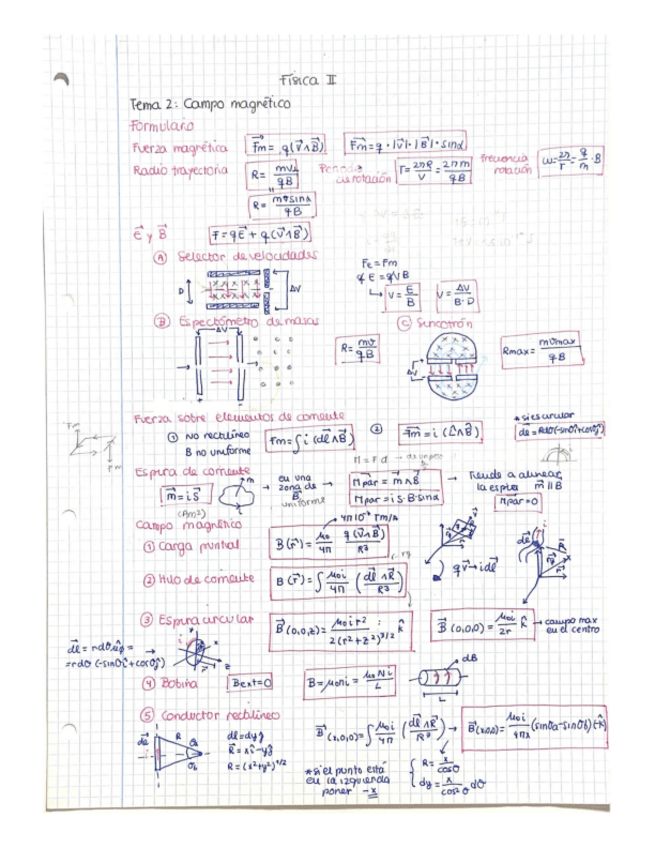 Física II
Tema 2: Campo magnético
Formulario
Fuerza magnética  Fm = q(v⃗∧B⃗)  Fm = q·|v⃗|·|B⃗|·sinα
Radio trayectoria  R = mv⊥/qB  Periodo rotación  T = 2πR/V = 2πm/qB  frecuencia rotación  ω = 2π/T = q/m · B
R = mvsinα/qB
E⃗ y B⃗  F⃗ = qE⃗ + q(v⃗∧B⃗)
Ⓐ Selector de velocidades  FE = Fm
qE = qVB
D  ΔV  V = E/B  V = ΔV/B·D
Ⓑ Espectómetro de masas  Ⓒ Sincotrón
ΔV  R = mv/qB  ΔV  Rmax = mvmax/qB
Fuerza sobre elementos de corriente
① no rectilíneo B no uniforme  Fm = ∫ i (dl⃗∧B⃗)  ② F⃗m = i (L⃗∧B⃗)  *si es curcular
dl⃗ = Rdθ(-sinθî+cosθĵ)
Fm  Fm
M = F·d
Espira de corriente
m⃗ = iS⃗  (Am²)  → en una zona de B⃗ uniforme → M⃗par = m⃗∧B⃗ → Tiende a alinear la espira m⃗ ∥ B
Mpar = i·S·B·sinα  Mpar = 0
Campo magnético  4π10⁻⁷ Tm/A
① Carga puntual  B(r⃗) = μ₀/4π q(v⃗∧R⃗)/R³  qv⃗ → idl⃗
② Hilo de corriente  B(r⃗) = ∫ μ₀i/4π (dl⃗∧R⃗/R³)
③ Espira circular  B⃗(0,0,z) = μ₀ir²/2(r²+z²)^3/2 · k̂  B⃗(0,0,0) = μ₀i/2r k̂ → campo max en el centro
dl⃗ = rdθûφ =
= rdθ(-sinθî+cosθĵ)
④ Bobina  Bext = 0  B = μ₀ni = μ₀Ni/L  dB  L
⑤ Conductor rectilíneo
dl⃗  R  θa  θb  dl = dyĵ
R⃗ = xî - yĵ
R = (x²+y²)^1/2
B⃗(x,0,0) = ∫ μ₀i/4π (dl⃗∧R⃗/R³) → B⃗(x,0,0) = μ₀i/4πx (sinθa-sinθb)(-k̂)
*si el punto está en la izquierda poner -x
R = x/cosθ
dy = x/cos²θ dθ